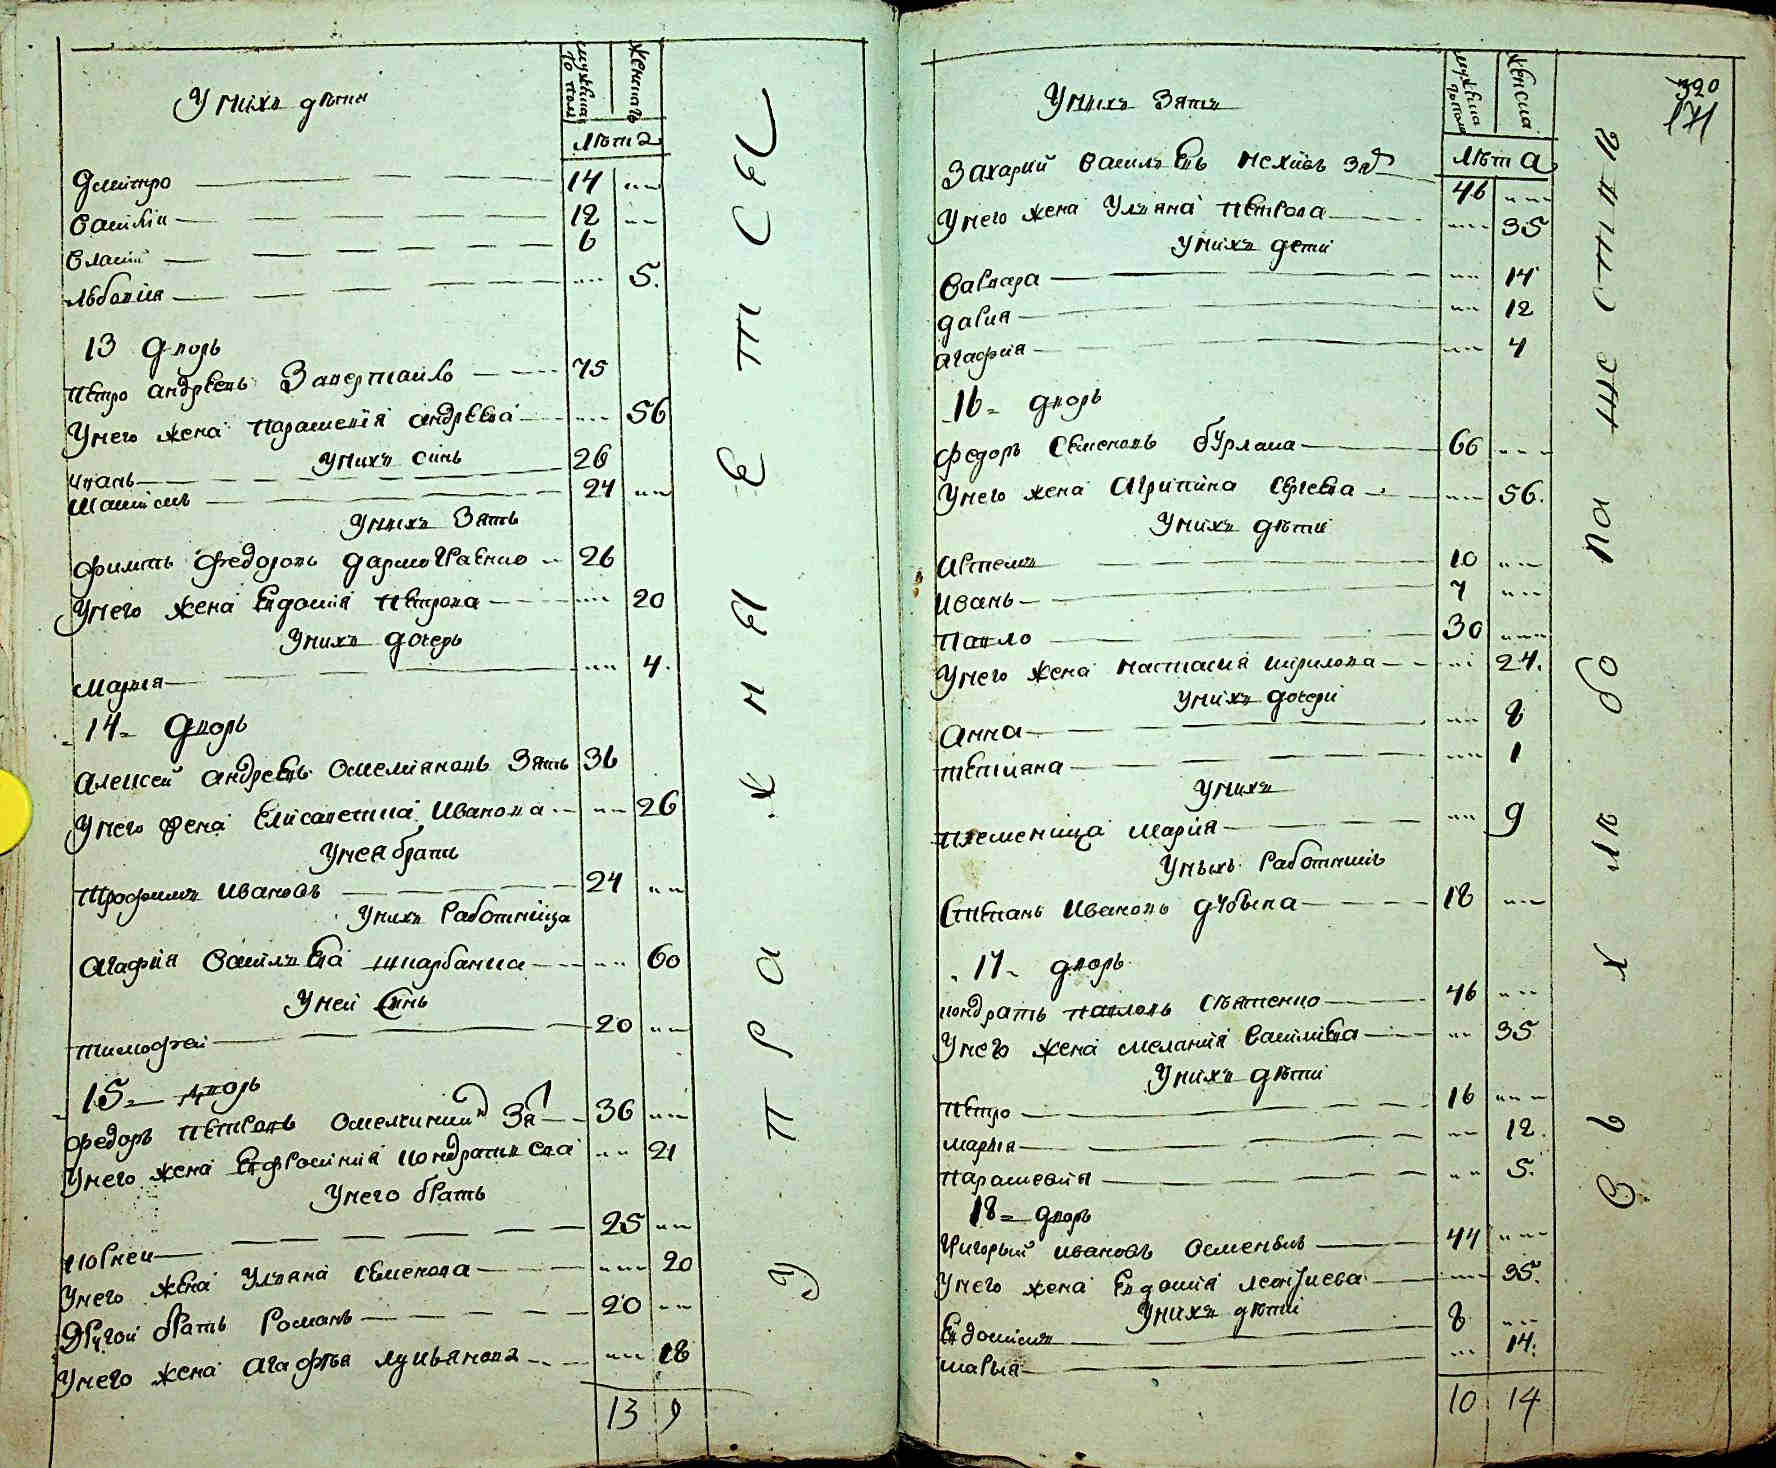 У нихъ дѣти
мужеска
го пола
женска
лѣта
Дмитро 14
Василій 12
Власій 6
5.
13 Дворъ
Петро Андреевъ 75
У него жена Параскевія Андреева 56
У нихъ синъ
Иванъ 26
Максимъ 24
У нихъ Зять
Филипъ Федоровъ 26
У него жена Евдокія Петрова 20
У нихъ дочерь
Марія 4.
14 Дворъ
Алексей Андреевъ Омеляновъ Зять 36
У него жена Елисавета Иванова 26
У нея братъ
Трофимъ Ивановъ 24
У нихъ Работница
Агафия Василева 60
У ней Синъ
Тимофей 20
15 Дворъ
Федоръ Петровъ 36
У него жена Евфросинія Кондратиева 21
У него братъ
Корней 25
У него жена Уляна Семенова 20
Другой братъ Романъ 20
У него жена Агафья Лукьянова 18
13 9
У П Р А Ж Н Ы Е Т С Ы
320
171
У нихъ Зять
мужеска
го пола
женска
лѣта
Захарий Василевъ 46
У него жена Уляна Петрова 35
У нихъ дети
Варвара 14
Дария 12
Агафия 4
16 Дворъ
Федоръ Семеновъ Бурлака 66
У него жена Агрипина Сергева 56.
У нихъ дѣти
Артемъ 10
Иванъ 7
Павло 30
У него жена Настасия Кирилова 24.
У нихъ дочери
Анна 8
Тетіяна 1
У нихъ
племеница Мария 9
У нихъ Работникъ
Степанъ Ивановъ 18
17 дворъ
Кондратъ Павловъ 46
У него жена Меланія Василіева 35
У нихъ дѣти
Петро 16
Мария 12.
Параскевия 5.
18 дворъ
Григорый Ивановъ 44
У него жена Евдокія Леонтиева 35.
У нихъ дѣти
Евдокимъ 8
Марья 14.
10 14